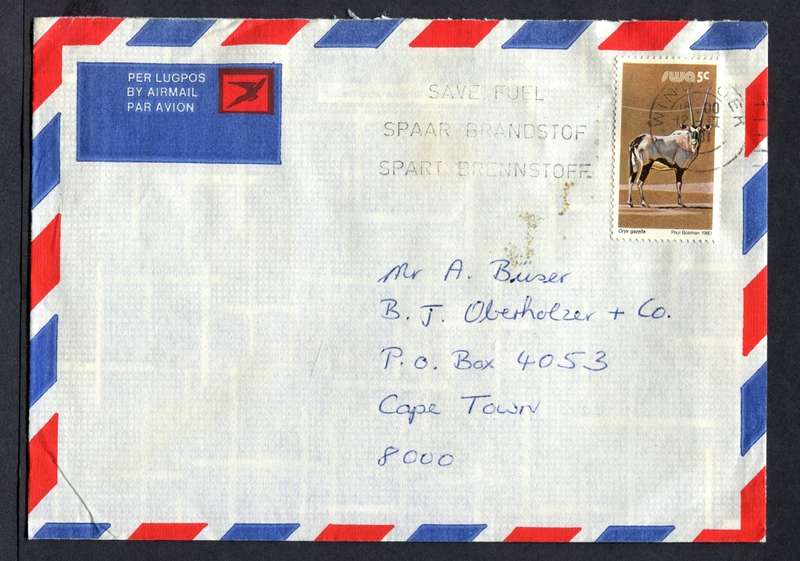 PER LUGPOS
BY AIRMAIL
PAR AVION
SAVE FUEL
SPAAR BRANDSTOF
SPART BRENNSTOFF
swa 5c
Oryx gazella
Paul Bosman 1980
Mr A. Buser
B. J. Oberholzer + Co.
P.O. Box 4053
Cape Town
8000